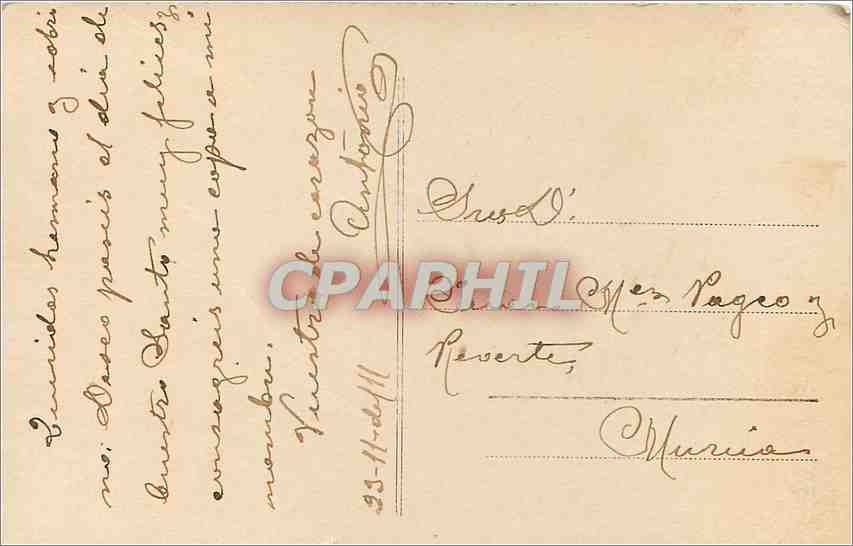 Queridos hermano y sobri
no: Deseo paseis el dia de
buestro Santo muy felices y
consagreis una copa a mi
nombre.
Vuestro de corazon
Antonio
23-11-del 11
Sres D.
Mnez Pageo y
Reverte,
Murcia
CPAPHIL